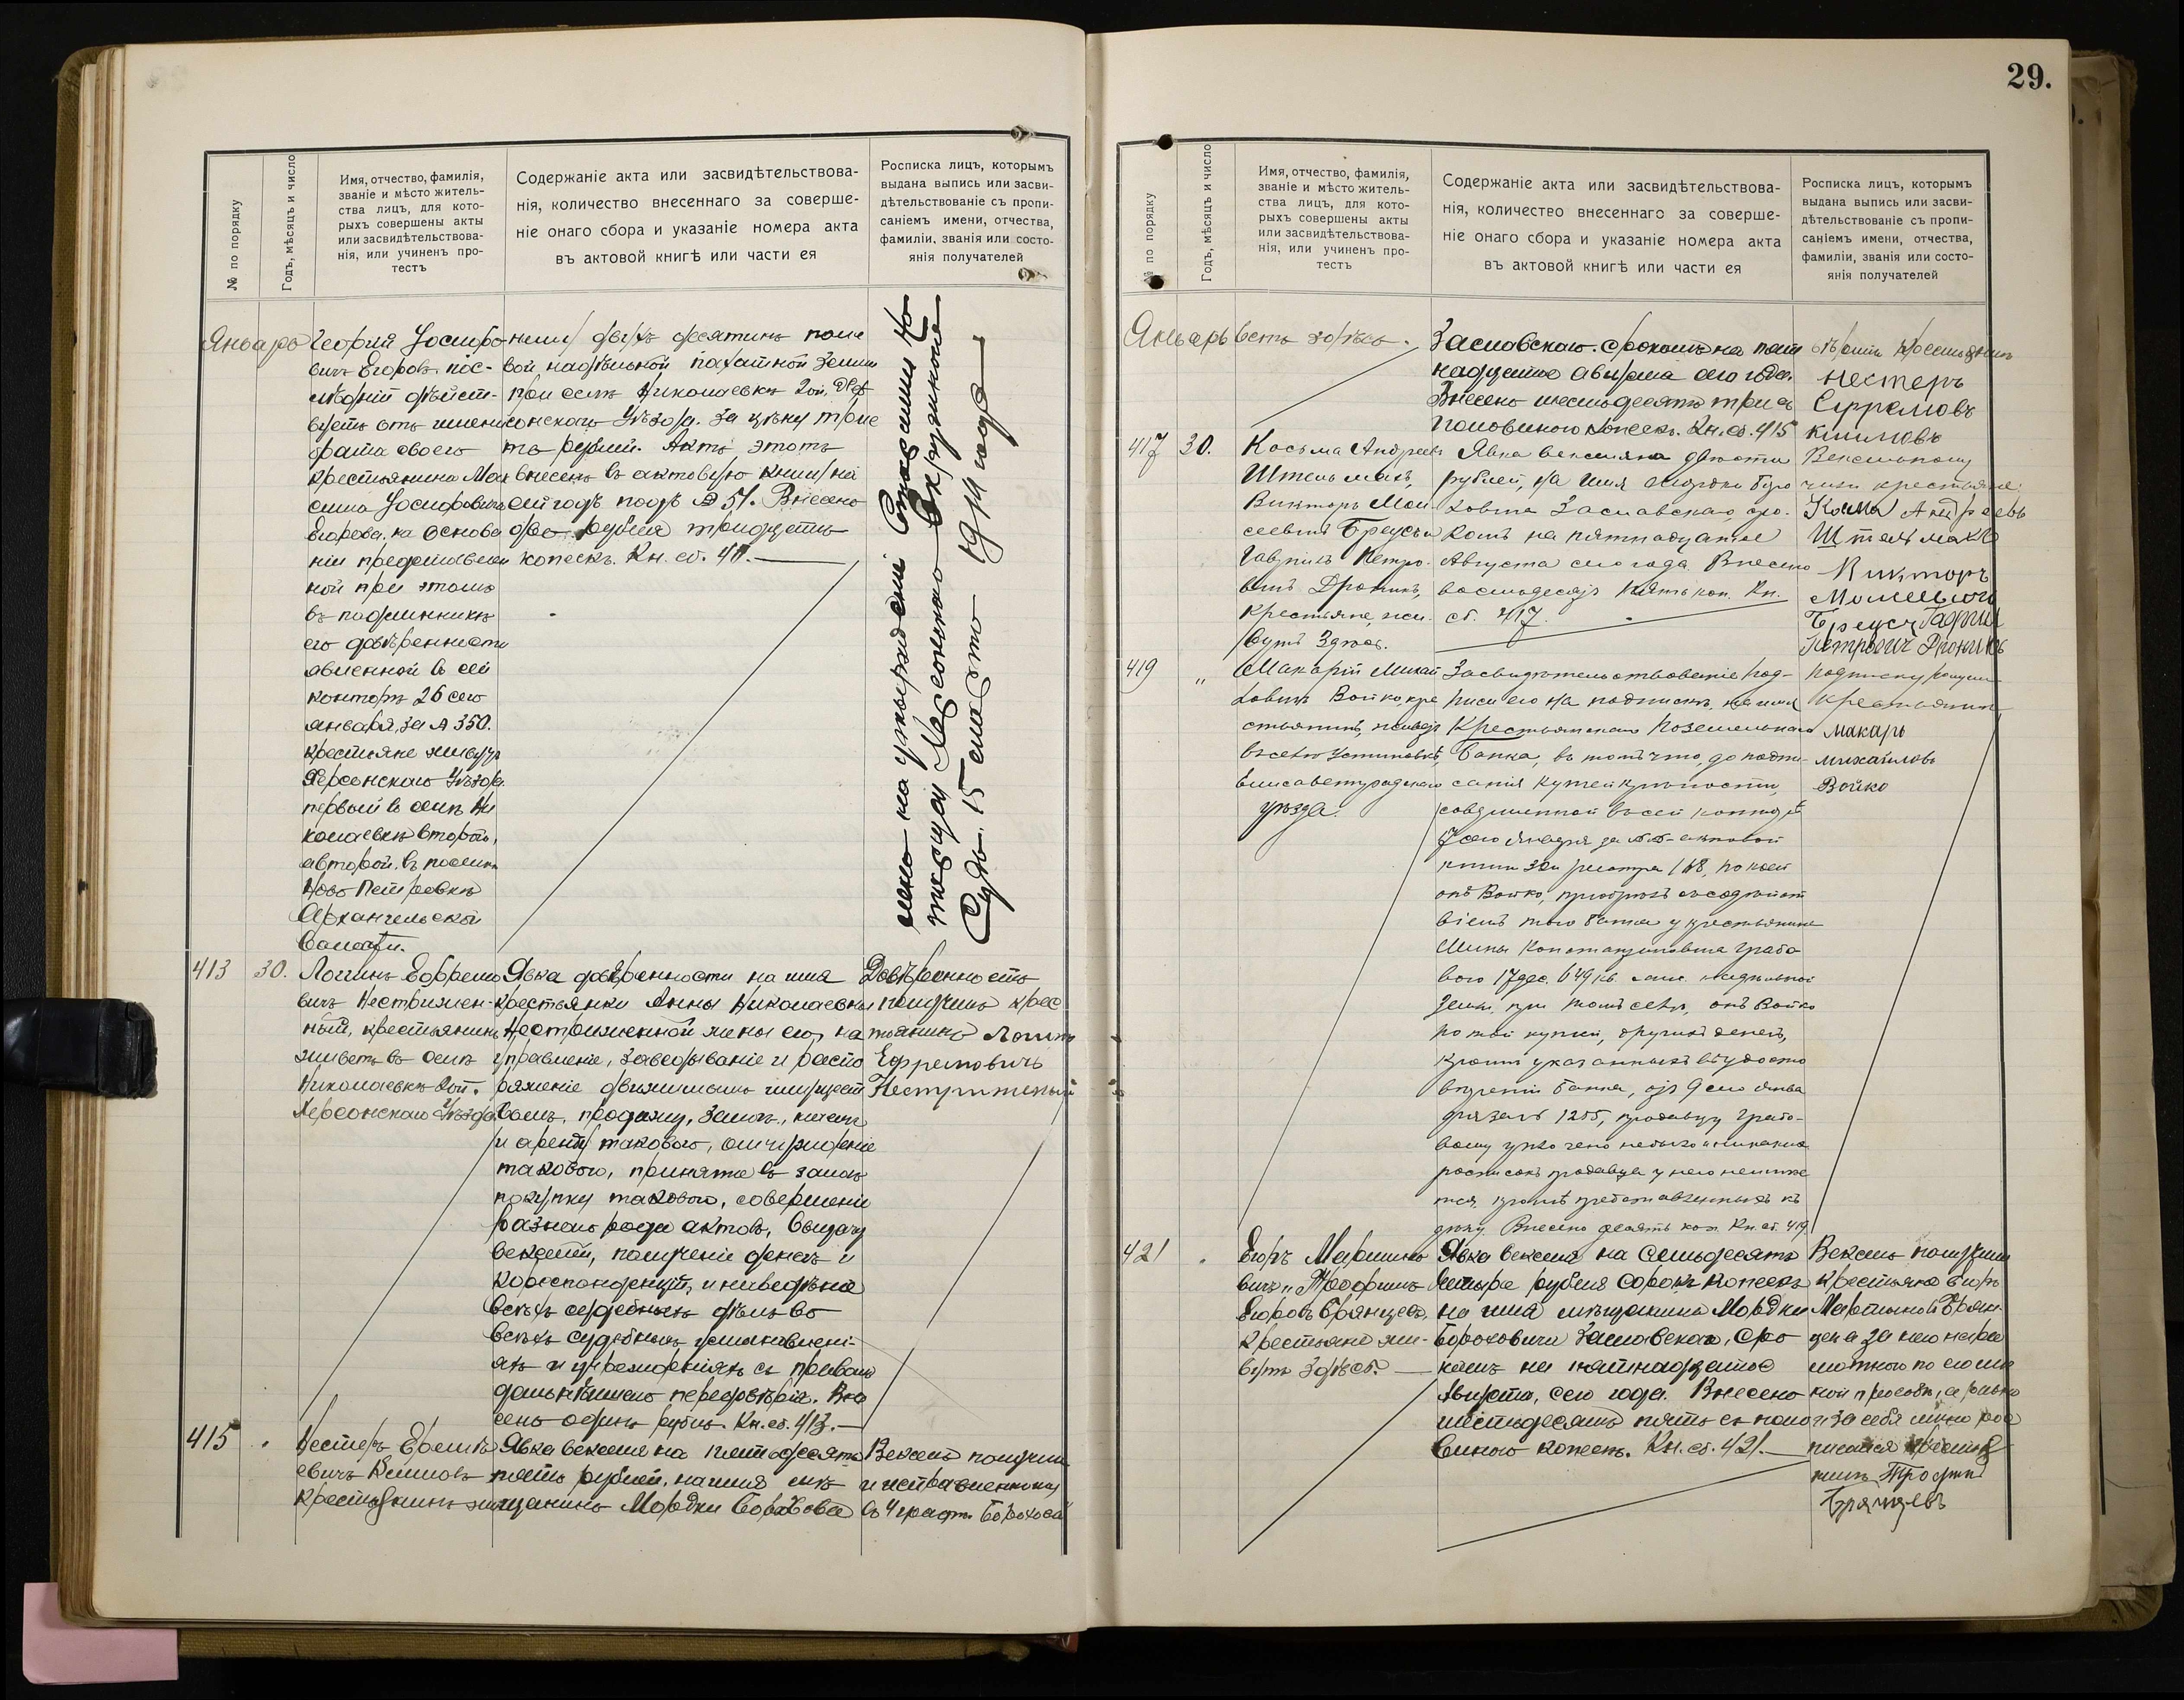 29.
№ по порядку
Годъ, мѣсяцъ и число
Имя, отчество, фамилія,
званіе и мѣсто житель-
ства лицъ, для кото-
рыхъ совершены акты
или засвидѣтельствова-
нія, или учиненъ про-
тестъ
Содержаніе акта или засвидѣтельствова-
нія, количество внесеннаго за соверше-
ніе онаго сбора и указаніе номера акта
въ актовой книгѣ или части ея
Росписка лицъ, которымъ
выдана выпись или засви-
дѣтельствованіе съ пропи-
саніемъ имени, отчества,
фамиліи, званія или состо-
янія получателей
Январь
Георгія Іосифо-
вичъ Егоровъ, пос-
лѣдній дѣйст-
вуетъ отъ имени
брата своего
крестьянина Мак
сима Іосифовича
Егорова, на основа
ніи представлен
ной при этомъ
въ подлинникѣ
его довѣренности
явленной въ сей
конторѣ 26 сего
января, за № 350.
крестьяне живутъ
Херсонскаго Уѣзда
первый въ селѣ Ни
колаевкѣ второй,
а второй, въ поселкѣ
Ново Петровкѣ
Архангельской
Волости.
двухъ десятинъ поле
вой надѣльной пахатной земли
при селѣ Николаевкѣ 2ой, Хер
сонскаго Уѣзда. за цѣну трис
та рублей. Актъ этотъ
внесенъ въ актовую книгу на
сей годъ подъ № 51. Внесено
два рубля тридцать
копеекъ. Кн. сб. 411.
на утвержденіе Старшимъ Но
таріусомъ Херсонскаго Окружнаго
Суда. 15 1914 года
413
30.
Логгинъ Ефремо
вичъ Нестримен-
ный, крестьянинъ
живетъ въ селѣ
Николаевкѣ 2ой.
Херсонскаго Уѣзда
Явка довѣренности на имя
крестьянки Анны Николаевны
Нестрименной жены его, на
управленіе, завѣдываніе и распо
ряженіе движимымъ имущест
вомъ, продажу, залогъ, наемъ
и аренду таковаго, отчужденіе
таковаго, принятіе въ залогъ
покупку таковаго, совершеніе
разнаго рода актовъ, выдачу
векселей, полученіе денегъ и
корреспонденціи, и на веденіе
всѣхъ судебныхъ дѣлъ во
всѣхъ судебныхъ установлені-
яхъ и учрежденіяхъ съ правомъ
дальнѣйшаго передовѣрія. Вне
сенъ одинъ рубль. Кн. сб. 413.
Довѣренность
получилъ крес
тьянинъ Логинъ
Ефремовичъ
Нестрименый
415
"
Нестеръ Ефремъ
евичъ Климовъ
крестьянинъ жи
Явка векселя на пятьдесятъ
пять рублей, на имя мѣ
щанина Мордки Борохова
Вексель получилъ
и исправленному
въ 4 графѣ „Борохова"
Январь
ветъ здѣсь.
Заславскаго. срокомъ на пят
надцатое августа сего года.
Внесено шестьдесятъ три съ
половиною копеекъ. Кн. сб. 415
вѣрить крестьянинъ
Нестеръ
Ефремовъ
климовъ
417
30.
Косьма Андреевъ
Штельмахъ,
Викторъ Мои
сеевичъ Бреусъ и
Гавріилъ Петро-
вичъ Дроникъ,
крестьяне, жи-
вутъ здѣсь.
Явка векселя на двѣсти
рублей, на имя Мордки Боро
ховича Заславскаго, сро-
комъ на пятнадцатое
Августа сего года. Внесено
восемьдесятъ пять коп. Кн.
сб. 417.
Вексель полу
чили крестьяне:
Косма Андреевъ
Штельмахъ
Викторъ
Моисеевичъ
Бреусъ Гавриилъ
Петровичъ Дроникъ
419
"
Макарій Михай
ловичъ Войко, кре
стьянинъ, живетъ
въ селѣ Устиновкѣ,
Елисаветградскаго
уѣзда.
Засвидѣтельствованіе под-
писи его на подпискѣ, на имя
Крестьянскаго Поземельнаго
Банка, въ томъ что, до подпи-
санія купчей крѣпости,
совершенной въ сей конторѣ
7 сего января за № актовой
книги и реестра 168, по коей
онъ Войко, пріобрѣлъ съ содѣйст
віемъ того банка у крестьянина
Мины Константиновича Грабо
вого 17 дес. 649 кв. саж. надѣльной
земли, при томъ селѣ, онъ Войко
по той купчей, другихъ денегъ,
кромѣ указанныхъ въ удосто
вѣреніи банка, отъ 9 сего янва
ря за № 1255, продавцу Грабо-
вому уплочено не было и никакихъ
росписокъ продавца у него не имѣе
тся, кромѣ представленныхъ къ
дѣлу. Внесено десять коп. Кн. сб. 419
Подписку получилъ
крестьянинъ
макаръ
михайловъ
Войко
421
"
Егоръ Мартыно
вичъ и Трофимъ
Егоровъ Брянцевы,
крестьяне жи-
вутъ здѣсь.
Явка векселя на семьдесятъ
четыре рубля сорокъ копеекъ
на имя мѣщанина Мордки
Бороховича Заславскаго, сро
комъ на пятнадцатое
Августа, сего года. Внесено
шестьдесятъ пять съ поло
виною копеекъ. Кн. сб. 421.
Вексель получили
крестьяне Егоръ
Мартыновъ Брян-
цевъ а за него негра
мотного по его лич
ной просьбѣ, а равно
и за себя лично рос
писался крестья
нинъ Трофимъ
Брянцевъ